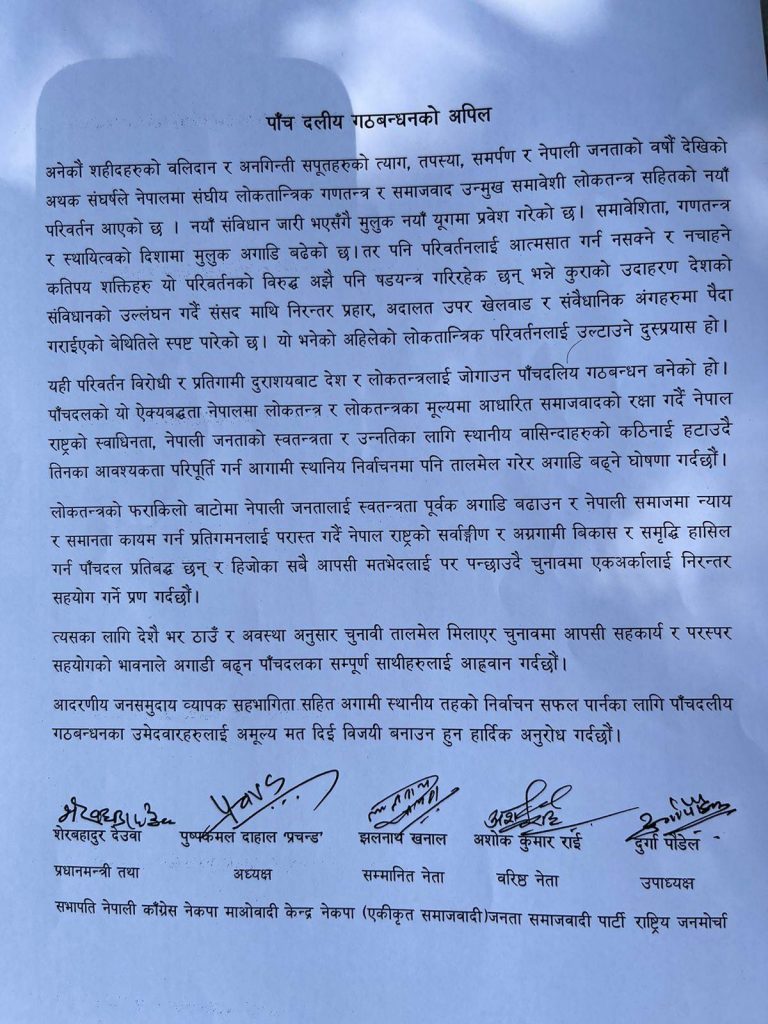 पाँच दलीय गठबन्धनको अपिल
अनेकौ शहीदहरुको वलिदान र अनगिन्ती सपूतहरुको त्याग, तपस्या, समर्पण र नेपाली जनताको वर्षौं देखिको
अथक संघर्षले नेपालमा संघीय लोकतान्त्रिक गणतन्त्र र समाजवाद उन्मुख समावेशी लोकतन्त्र सहितको नयाँ
परिवर्तन आएको छ । नयाँ संविधान जारी भएसँगै मुलुक नयाँ यूगमा प्रवेश गरेको छ। समावेशिता, गणतन्त्र
र स्थायित्वको दिशामा मुलुक अगाडि बढेको छ।तर पनि परिवर्तनलाई आत्मसात गर्न नसक्ने र नचाहने
कतिपय शक्तिहरु यो परिवर्तनको विरुद्ध अझै पनि षडयन्त्र गरिरहेक छन् भन्ने कुराको उदाहरण देशको
संविधानको उल्लंघन गर्दै संसद माथि निरन्तर प्रहार, अदालत उपर खेलवाड र संवैधानिक अंगहरुमा पैदा
गराईएको बेथितिले स्पष्ट पारेको छ। यो भनेको अहिलेको लोकतान्त्रिक परिवर्तनलाई उल्टाउने दुस्प्रयास हो।
यही परिवर्तन विरोधी र प्रतिगामी दुराशयबाट देश र लोकतन्त्रलाई जोगाउन पाँचदलिय गठबन्धन बनेको हो।
पाँचदलको यो ऐक्यबद्धता नेपालमा लोकतन्त्र र लोकतन्त्रका मूल्यमा आधारित समाजवादको रक्षा गर्दै नेपाल
राष्ट्रको स्वाधिनता, नेपाली जनताको स्वतन्त्रता र उन्नतिका लागि स्थानीय वासिन्दाहरुको कठिनाई हटाउदै
तिनका आवश्यकता परिपूर्ति गर्न आगामी स्थानिय निर्वाचनमा पनि तालमेल गरेर अगाडि बढ्ने घोषणा गर्दछौं।
लोकतन्त्रको फराकिलो बाटोमा नेपाली जनतालाई स्वतन्त्रता पूर्वक अगाडि बढाउन र नेपाली समाजमा न्याय
र समानता कायम गर्न प्रतिगमनलाई परास्त गर्दै नेपाल राष्ट्रको सर्वाङ्गीण र अग्रगामी बिकास र समृद्धि हासिल
गर्न पाँचदल प्रतिबद्ध छन् र हिजोका सबै आपसी मतभेदलाई पर पन्छाउदै चुनावमा एकअर्कालाई निरन्तर
सहयोग गर्ने प्रण गर्दछौं।
त्यसका लागि देशै भर ठाउँ र अवस्था अनुसार चुनावी तालमेल मिलाएर चुनावमा आपसी सहकार्य र परस्पर
सहयोगको भावनाले अगाडी बढ्न पाँचदलका सम्पूर्ण साथीहरुलाई आह्रवान गर्दछौं।
आदरणीय जनसमुदाय व्यापक सहभागिता सहित अगामी स्थानीय तहको निर्वाचन सफल पार्नका लागि पाँचदलीय
गठबन्धनका उमेदवारहरुलाई अमूल्य मत दिई विजयी बनाउन हुन हार्दिक अनुरोध गर्दछौं।
शेरबहादुर देउवा पुष्पकमल दाहाल ‘प्रचन्ड’ झलनाथ खनाल अशोक कुमार राई दुर्गा पौडेल
प्रधानमन्त्री तथा अध्यक्ष सम्मानित नेता वरिष्ठ नेता उपाध्यक्ष
सभापति नेपाली काँग्रेस नेकपा माओवादी केन्द्र नेकपा (एकीकृत समाजवादी)जनता समाजवादी पार्टी राष्ट्रिय जनमोर्चा